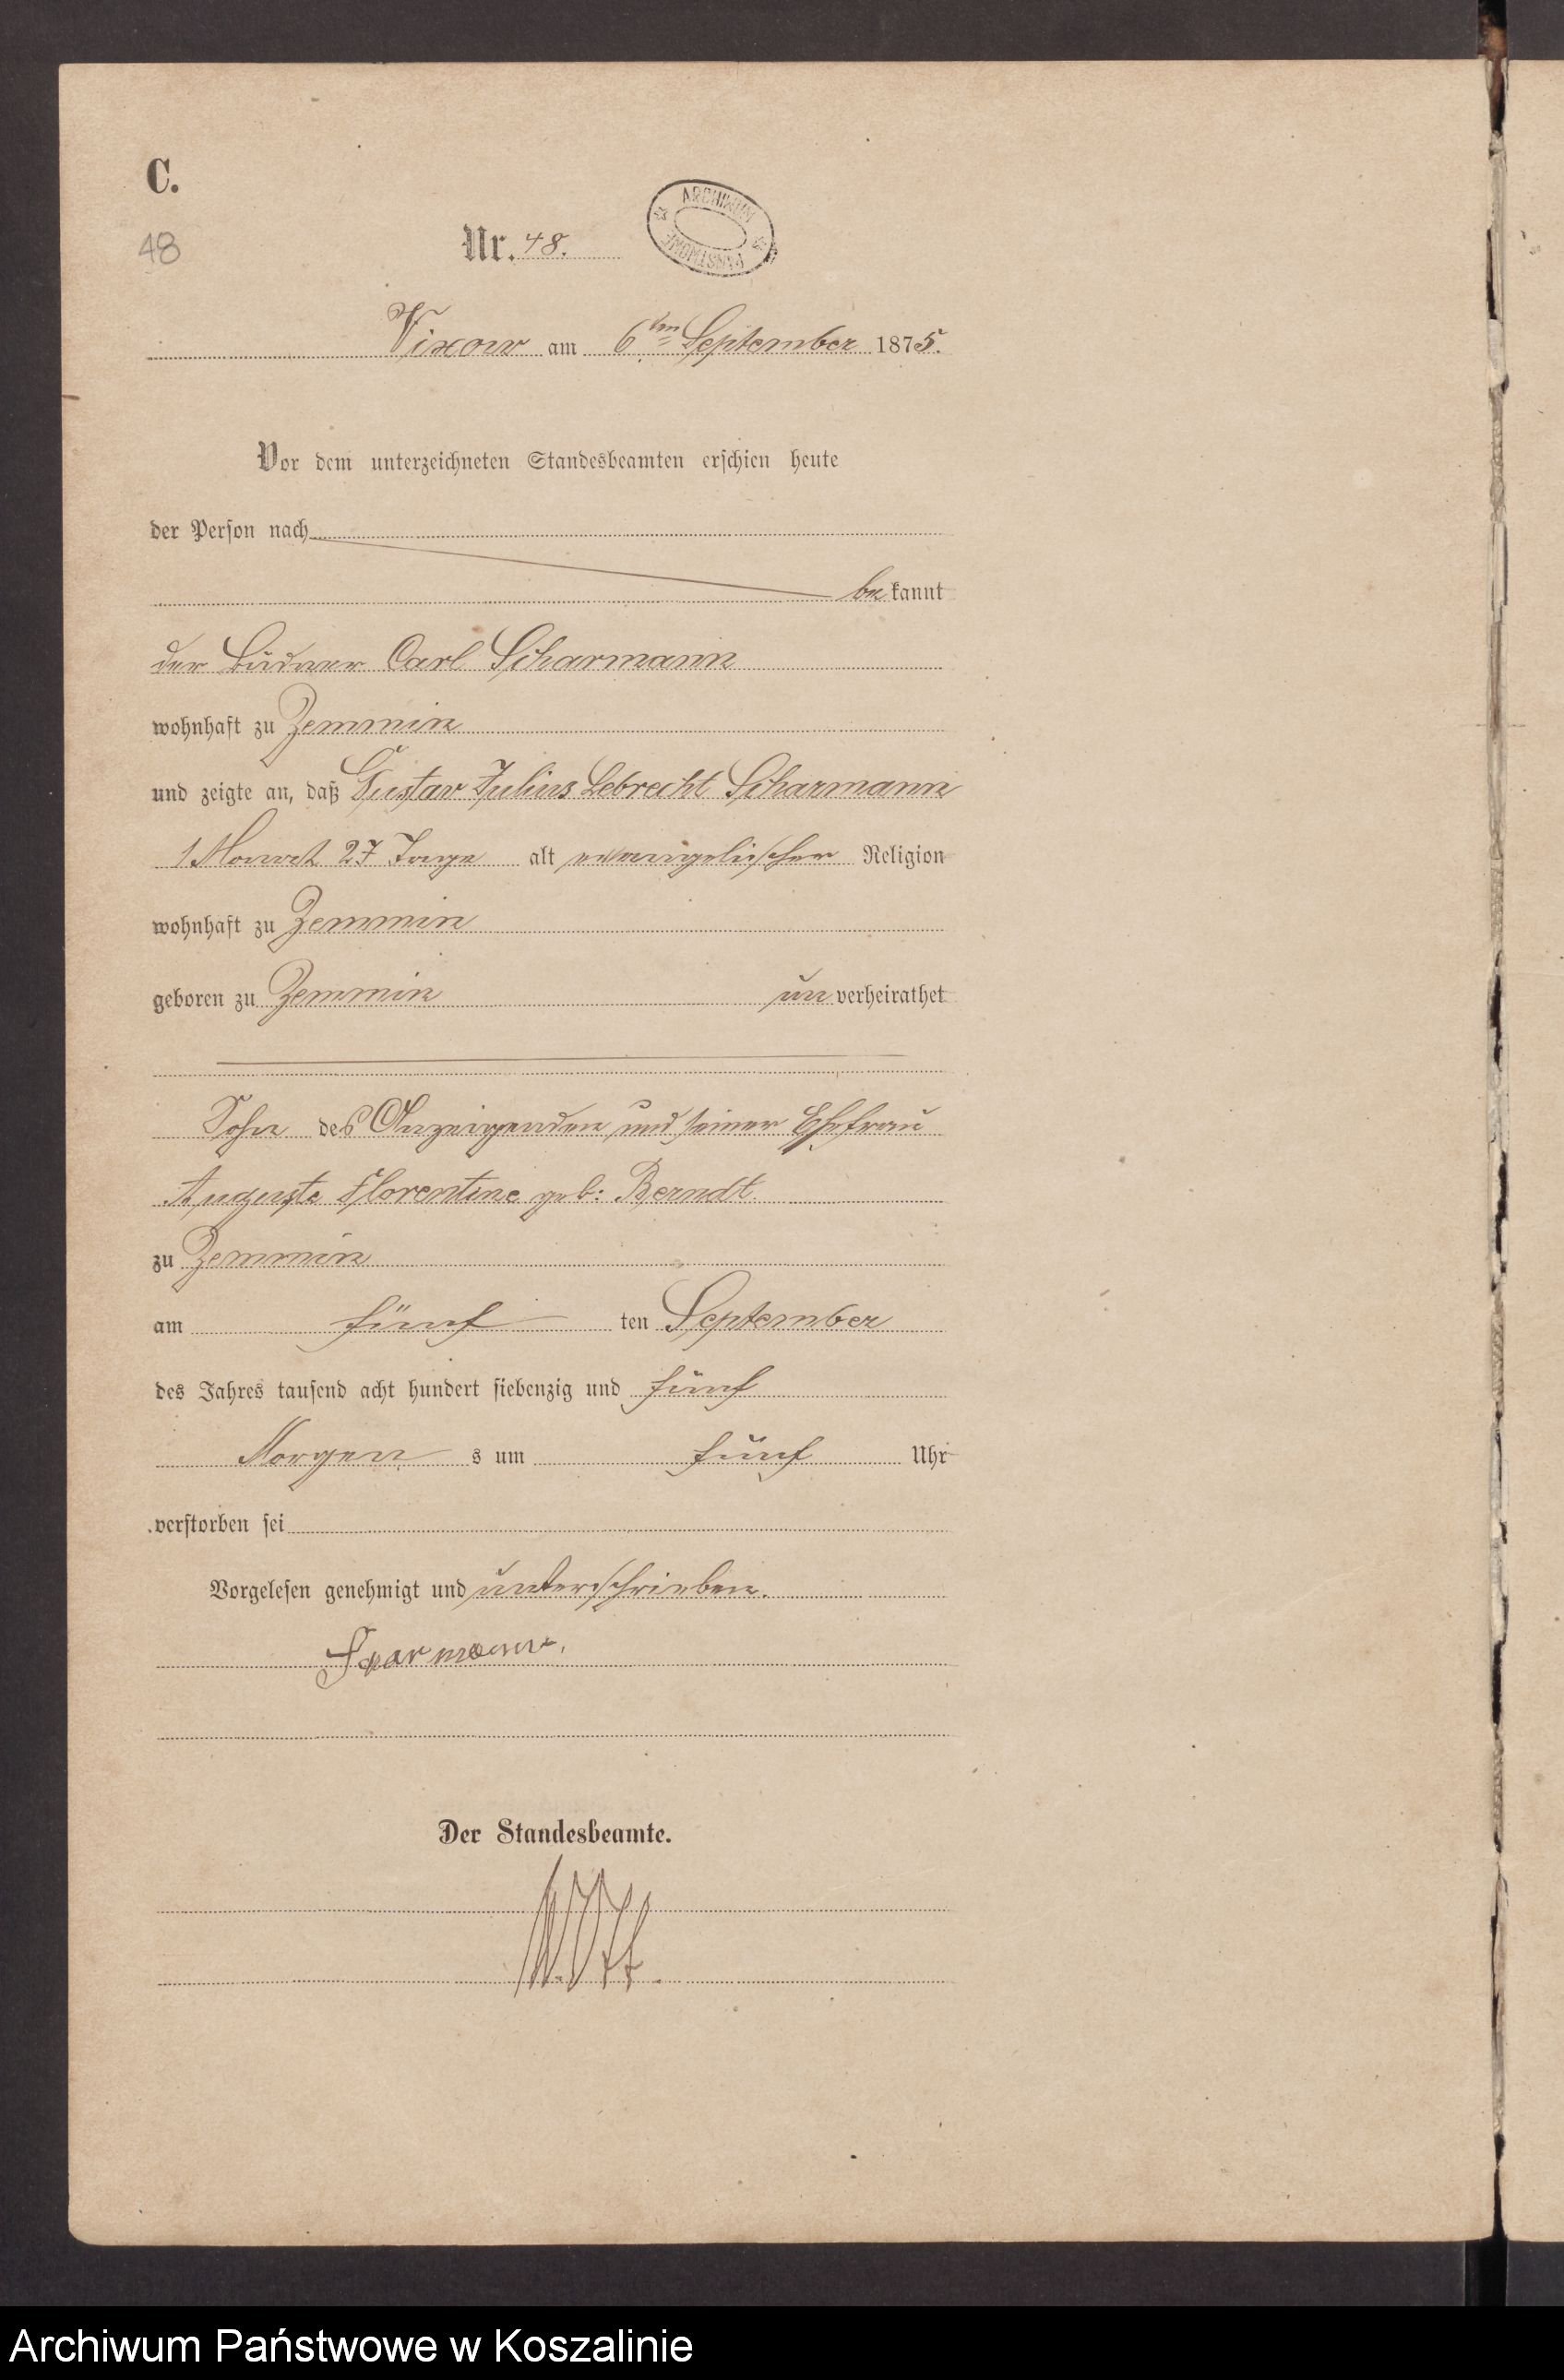 C.
48
Nr. 48.
ARCHIWUM
PAŃSTWOWE
Vixow am 6ten September 1875.
Vor dem unterzeichneten Standesbeamten erschien heute
der Person nach
bekannt
der Büdner Carl Scharmann
wohnhaft zu Zemmin
und zeigte an, daß Gustav Julius Lebrecht Scharmann
1 Monat 27 Tage alt evangelischer Religion
wohnhaft zu Zemmin
geboren zu Zemmin unverheirathet
Sohn des Anzeigenden und seiner Ehefrau
Auguste Florentine geb: Berndt
zu Zemmin
am fünf ten September
des Jahres tausend acht hundert siebenzig und fünf
Morgen s um fünf Uhr
verstorben sei
Vorgelesen genehmigt und unterschrieben.
Der Standesbeamte.
Archiwum Państwowe w Koszalinie